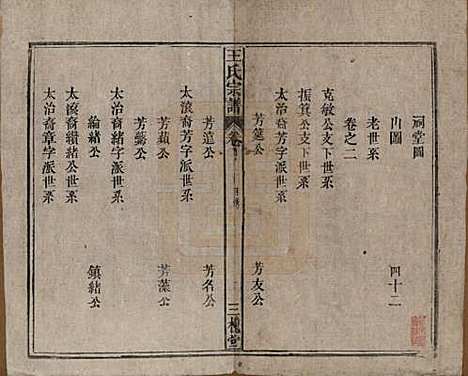 祠堂圖
山圖 四十二
老世系
卷之二
克敏公支下世系
振箕公支下世系
太治裔芳字派世系
芳筵公 芳友公
王氏宗譜 卷 目錄 三槐堂
芳遠公 芳名公
太濱裔芳字派世系
芳蘋公 芳藻公
芳懿公
太治裔緒字派世系
綸緒公 鎮緒公
太濱裔纘緒公世系
太治裔章字派世系